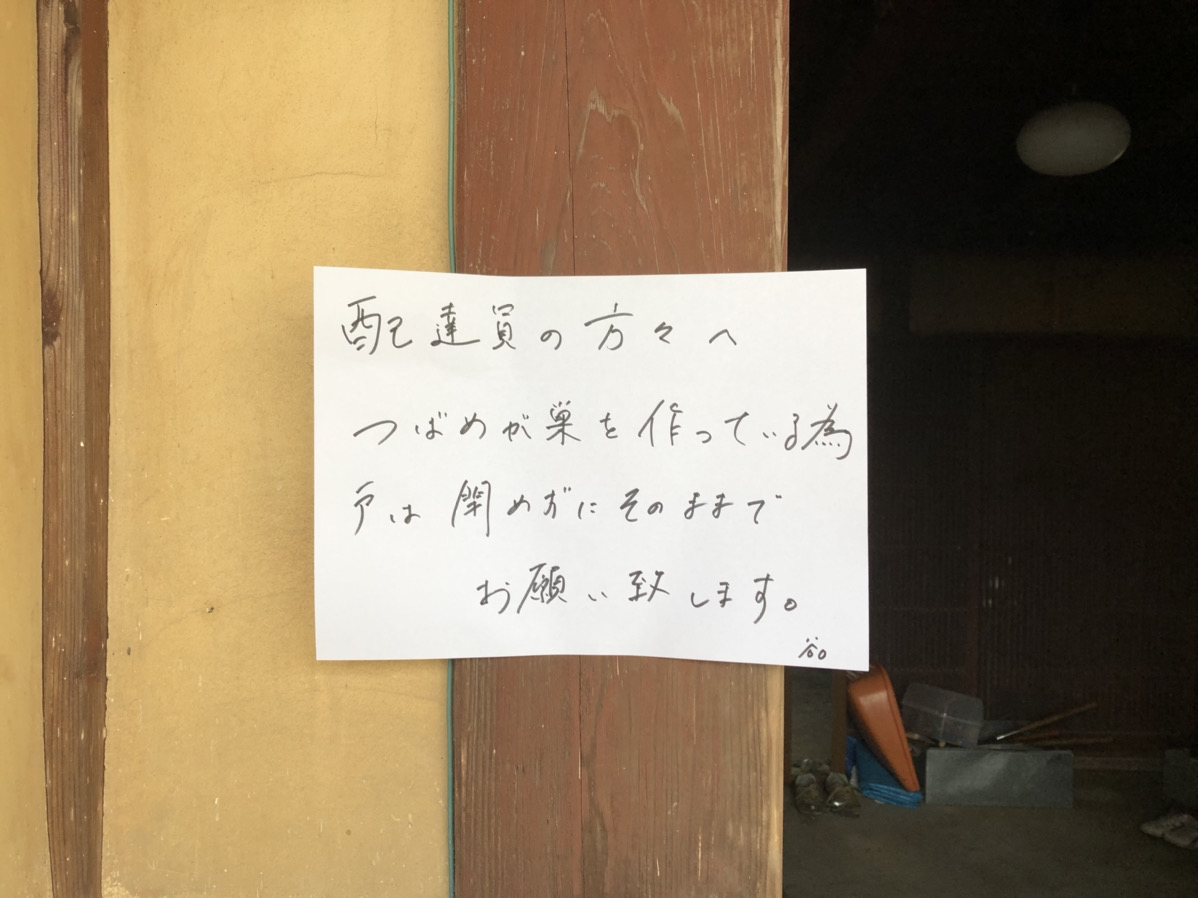 配達員の方々へ
つばめが巣を作っている為
戸は閉めずにそのままで
お願い致します。
谷口